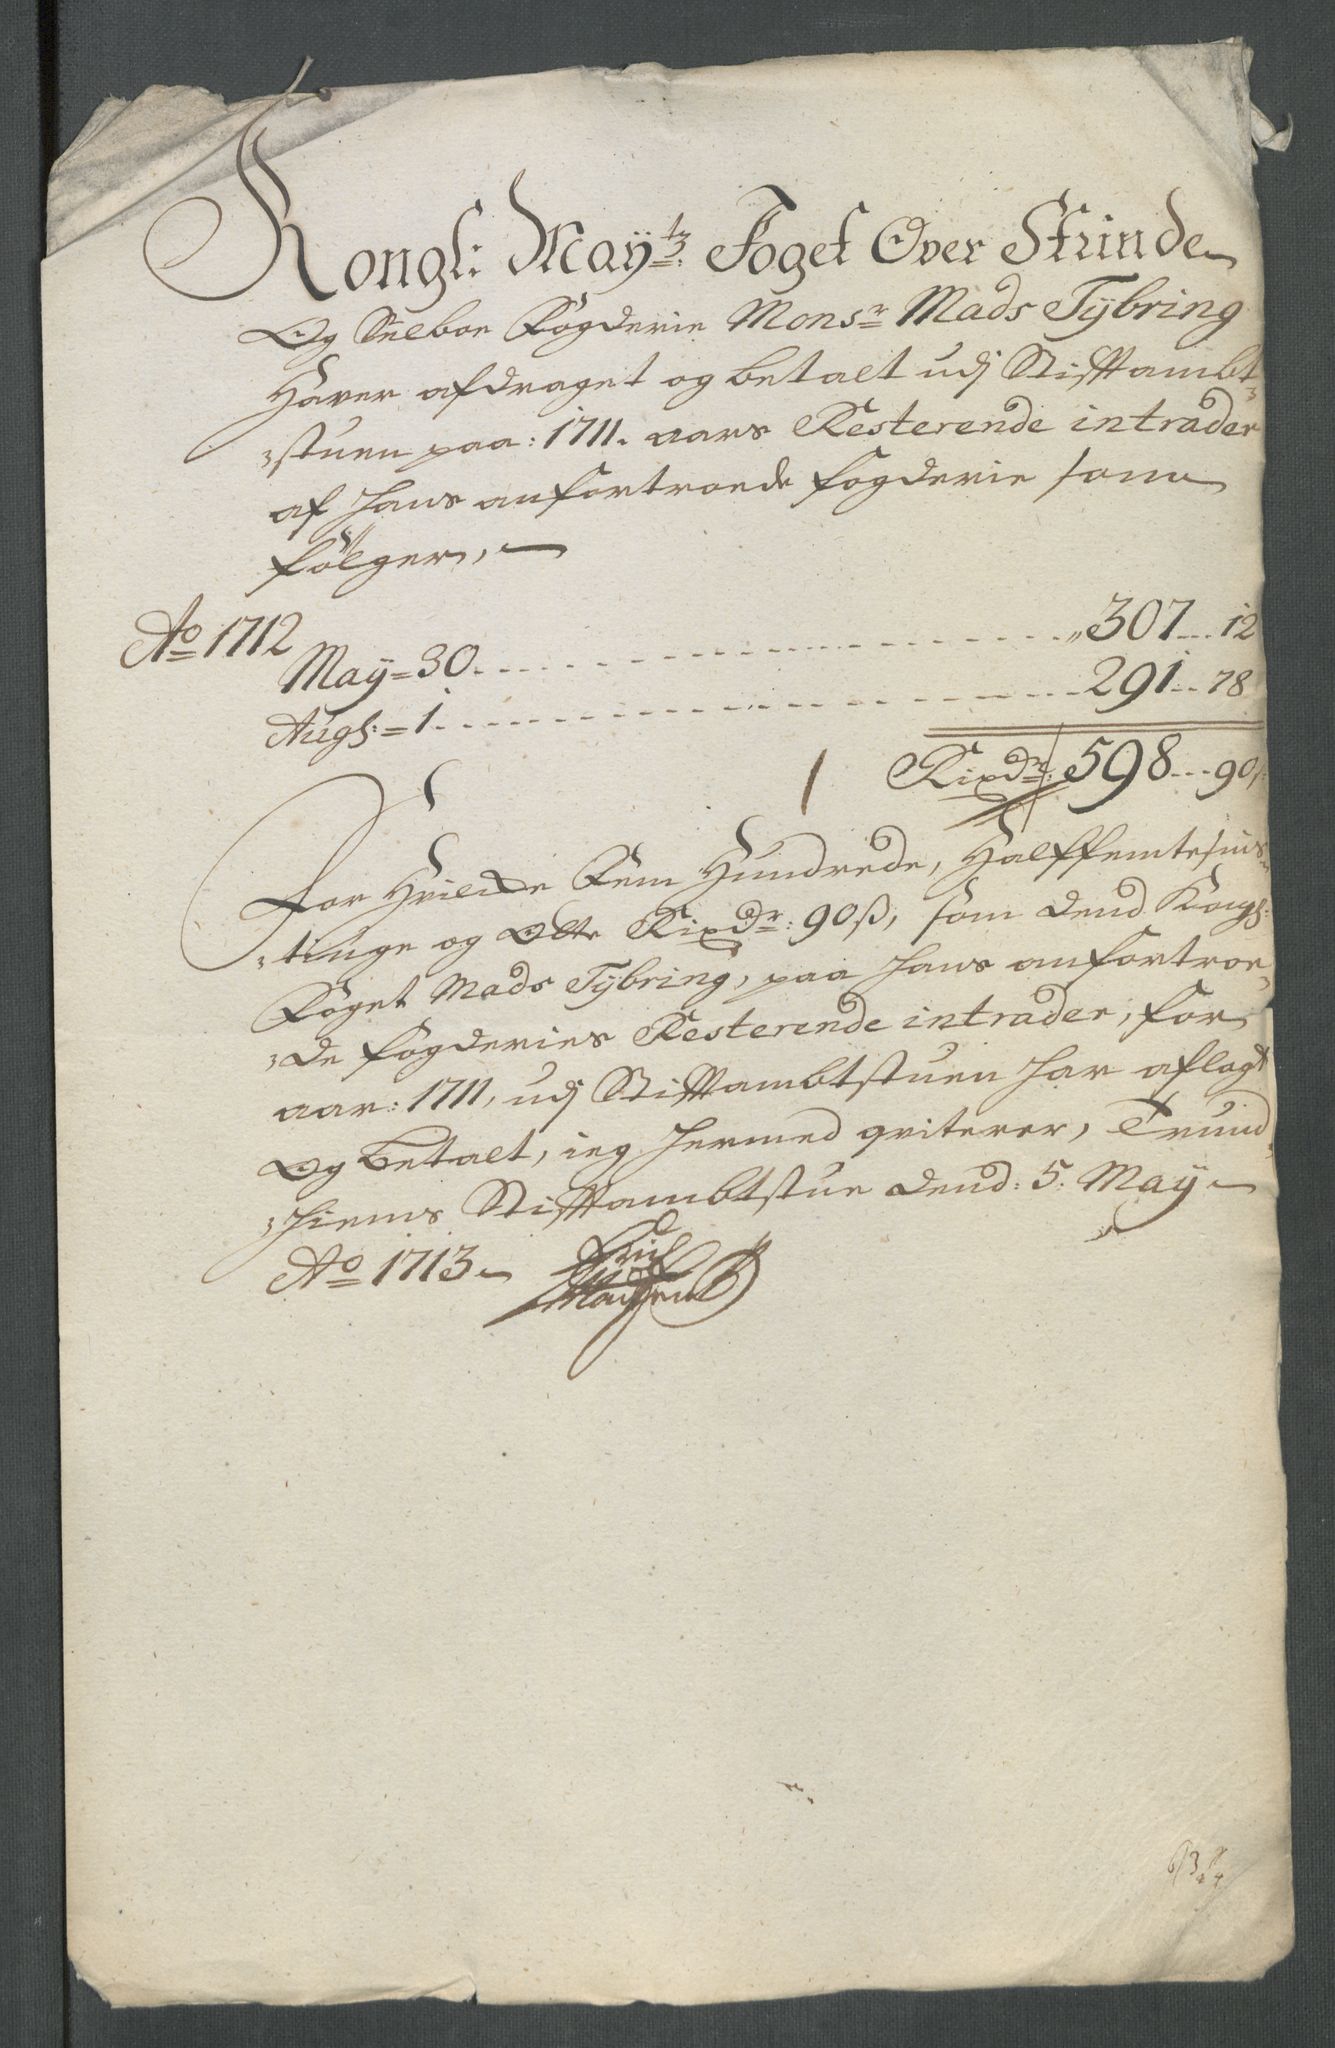 Kongl: Maÿtz: Foget Over Strinde
Og Selboe Fogderie Monsr Mads Tÿbring
Haver afdraget og betalt udj Stiftambt-
-stuen paa: 1711. aars Resterende intrader
af hans anfortroede fogderie som
følger,
Ao 1712
Maÿ = 30. 307 .. 12
Augl: = 1. 291 .. 78
Rixdr: 598 .. 90ß:
For Hvilcke Fem Hundrede, Halffemtesins-
-tiuge og Otte Rixdr: 90ß, som dend Kongl:
Foget Mads Tÿbring, paa hans anfortroe-
-de fogderies Resterende intrader, for
aar: 1711, udj Stiftambtstuen har aflagt
Og betalt, ieg hermed qviterer, Trund-
-hiems Stiftambtstue dend: 5: Maÿ
Ao 1713